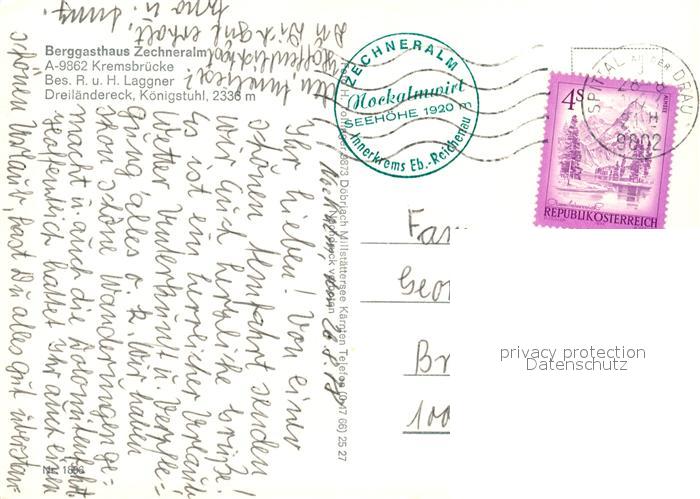 Berggasthaus Zechneralm
A-9862 Kremsbrücke
Bes. R. u. H. Laggner
Dreiländereck, Königstuhl, 2336 m
ZECHNERALM
Nockalmwirt
SEEHÖHE 1920 m
Innerkrems Eb.-Reichenau
SPITTAL AN DER DRAU
9802
4S
REPUBLIK ÖSTERREICH
9873 Döbriach Millstättersee Kärnten Telefon (047 66) 25 27
Ihr Lieben! Von einer
schönen Almfahrt senden
wir Euch herzliche Grüße!
Es ist ein herrlicher Urlaub
Wetter Unterkunft u. Verpfle=
gung alles o. k. Wir haben
schon schöne Wanderungen ge=
macht u. auch die Dolomitenfahrt
Hoffentlich hattet ihr auch einen
schönen Urlaub, hast Du alles gut überstan=
Hoffentlich
gut erholt,
Fa
Geo
Br
100
privacy protection
Datenschutz